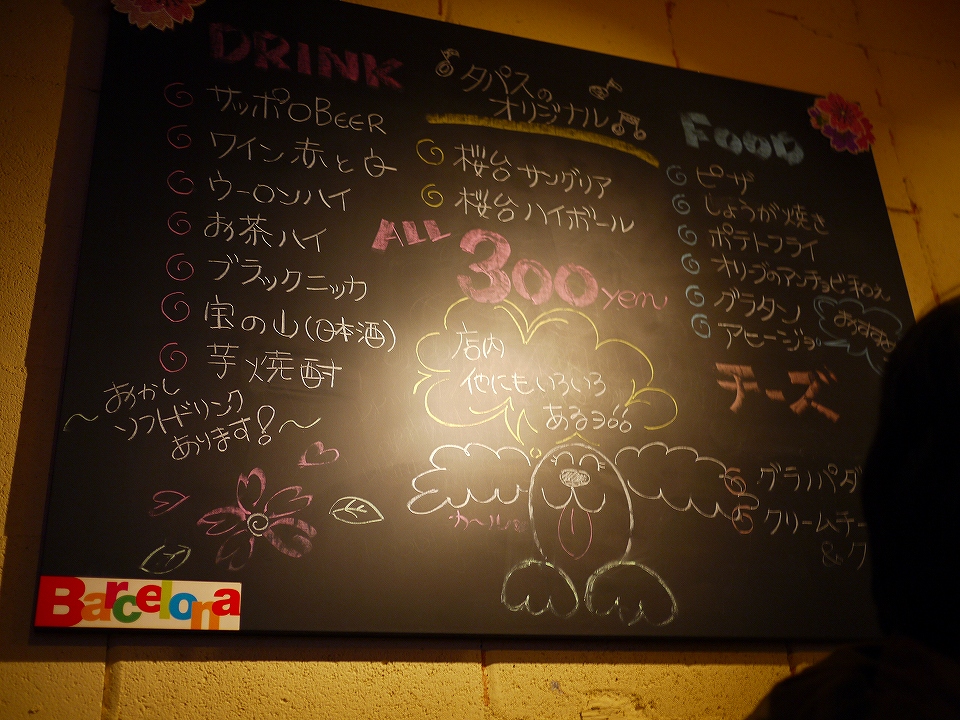 DRINK
サッポロBEER
ワイン 赤と白
ウーロンハイ
お茶ハイ
ブラックニッカ
宝の山(日本酒)
芋焼酎
〜おかし
ソフトドリンク
あります!〜
タパスの
オリジナル
桜台サングリア
桜台ハイボール
ALL 300yen
店内
他にもいろいろ
あるヨ!!
カール
FOOD
ピザ
しょうが焼き
ポテトフライ
オリーブのアンチョビ和え
グラタン
アヒージョ
おすすめ
チーズ
グラノパダ
クリームチー
&ク
Barcelona